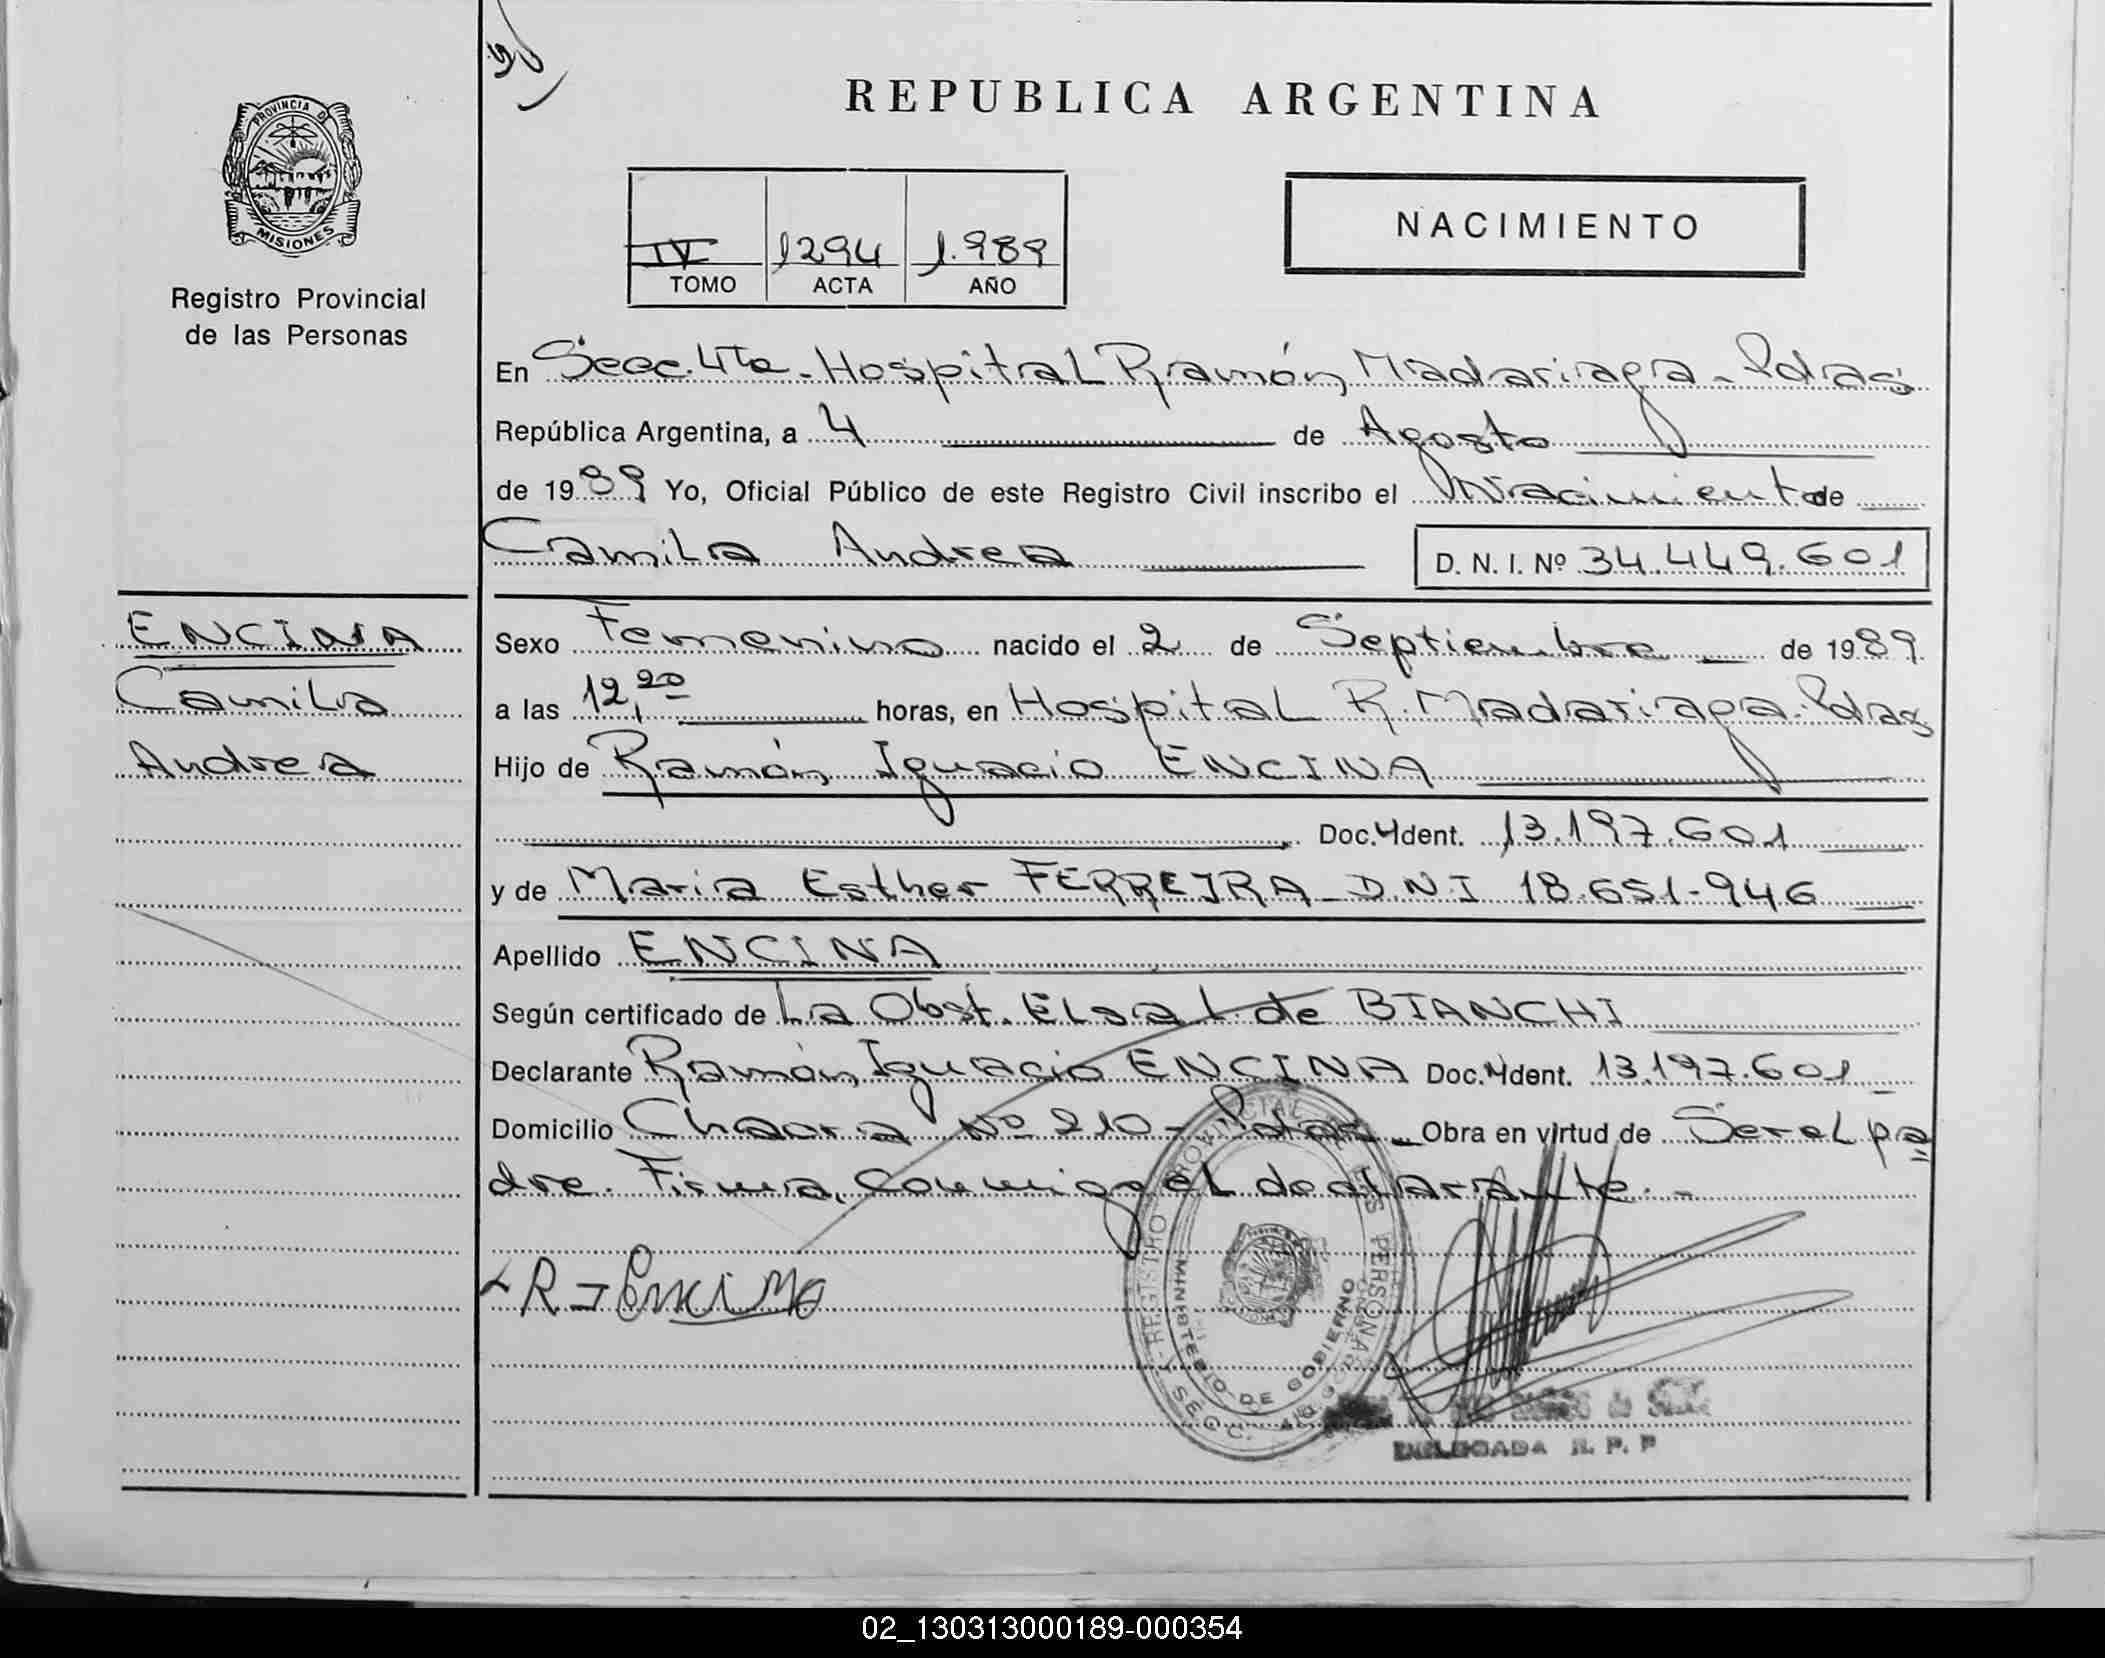 PROVINCIA DE
MISIONES
Registro Provincial
de las Personas
REPUBLICA ARGENTINA
NACIMIENTO
IV 1294 1.989
TOMO ACTA AÑO
En Secc. 4ta - Hospital Ramón Madariaga - Pdas
República Argentina, a 4 de Agosto
de 1989 Yo, Oficial Público de este Registro Civil inscribo el Nacimiento de
Camila Andrea D. N. I. Nº 34.449.601
ENCINA
Camila
Andrea
Sexo Femenino nacido el 2 de Septiembre de 1989
a las 12,20 horas, en Hospital R. Madariaga - Pdas
Hijo de Ramón Ignacio ENCINA
Doc. Ident. 13.197.601
y de Maria Esther FERREIRA - D.N.I 18.651.946
Apellido ENCINA
Según certificado de La Obst. Elsa L. de BIANCHI
Declarante Ramón Ignacio ENCINA Doc. Ident. 13.197.601
Domicilio Chacra Nº 210 - Pdas - Obra en virtud de Ser el pa
dre. Firma, conmigo el declarante. -
R I Encina
REGISTRO PROVINCIAL DE LAS PERSONAS
MINISTERIO DE GOBIERNO
SECC. 4ta
DELEGADA R. P. P
02_130313000189-000354